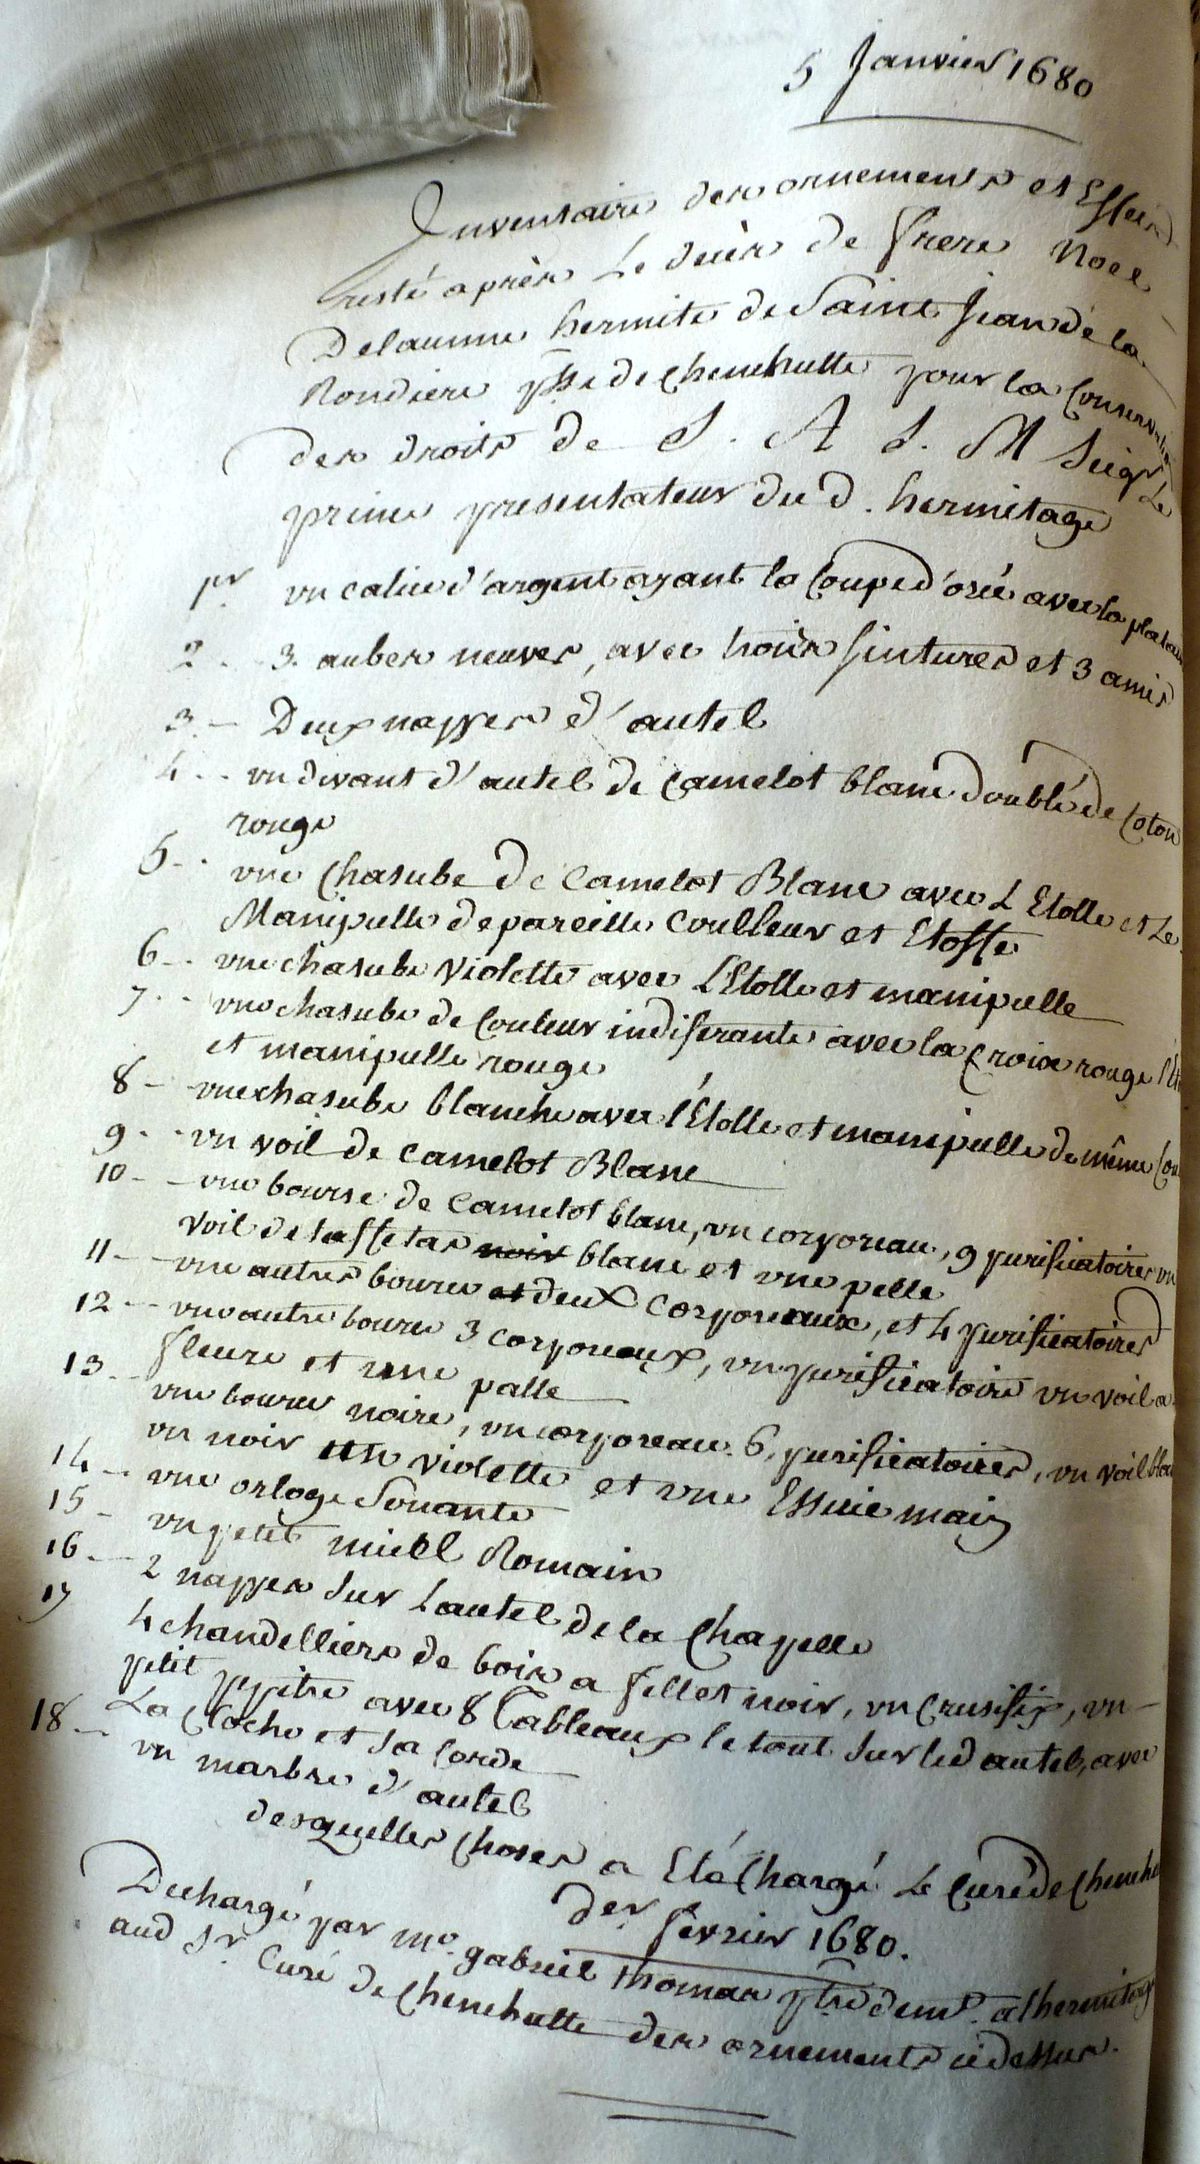 5 Janvier 1680
Inventaire des ornements et Effets
resté après Le decès de frere Noel
Delaunne hermite de Saint Jean de la
Rondiere psse de chenehutte pour la Conservation
des droits de S. A S. M Seigr Le
prince presentateur du d. hermitage
1er un calice d'argent ayant la Coupe d'orée avec la platain
2 . . 3. aubes neuves, avec trois sintures et 3 amis
3 - Deux nappes d'autel
4 . . un devant d'autel de Camelot blanc doublé de Coton
rouge
5 - . une Chasube de Camelot Blanc avec L'Etolle et Le
Manipulle de pareille Coulleur et Etoffe
6 - . une chasube violette avec L'Etolle et manipulle
7 . . une chasube de Couleur indiferante avec la Croix rouge l'Et
et manipulle rouge
8 - une chasube blanche avec l'Étolle et manipulle de même Cou
9 . . un voil de camelot Blanc
10 - une bourse de Camelot blanc, un corporeau, 9 purificatoires un
voil de taffetas noir blanc et une pelle
11 - une autres bource et deux Corporeaux, et 4 purificatoires
12 - une autre bource 3 corporeaux, un purificatoire un voil a
fleure et une palle
13 - une bource noire, un corporeau 6, purificatoires, un voil blan
un noir un violette et une Essuie main
14 - une orloge Sonante
15 - un petit miell Romain
16 - 2 nappes sur L'autel de la Chapelle
17 4 chandelliers de bois a fillet noir, un Crusifix, un
petit pupitre avec 8 Tableaux le tout sur led autel, avec
La Cloche et sa Corde
18 - un marbre d'autel
desquelles Choses a Eté Chargé Le Curé de Chenehu
der fevrier 1680.
Dechargé par me. gabriel thomas ptre demt. a l'hermitage
aud Sr. Curé de Chenehutte des ornements ci dessus.